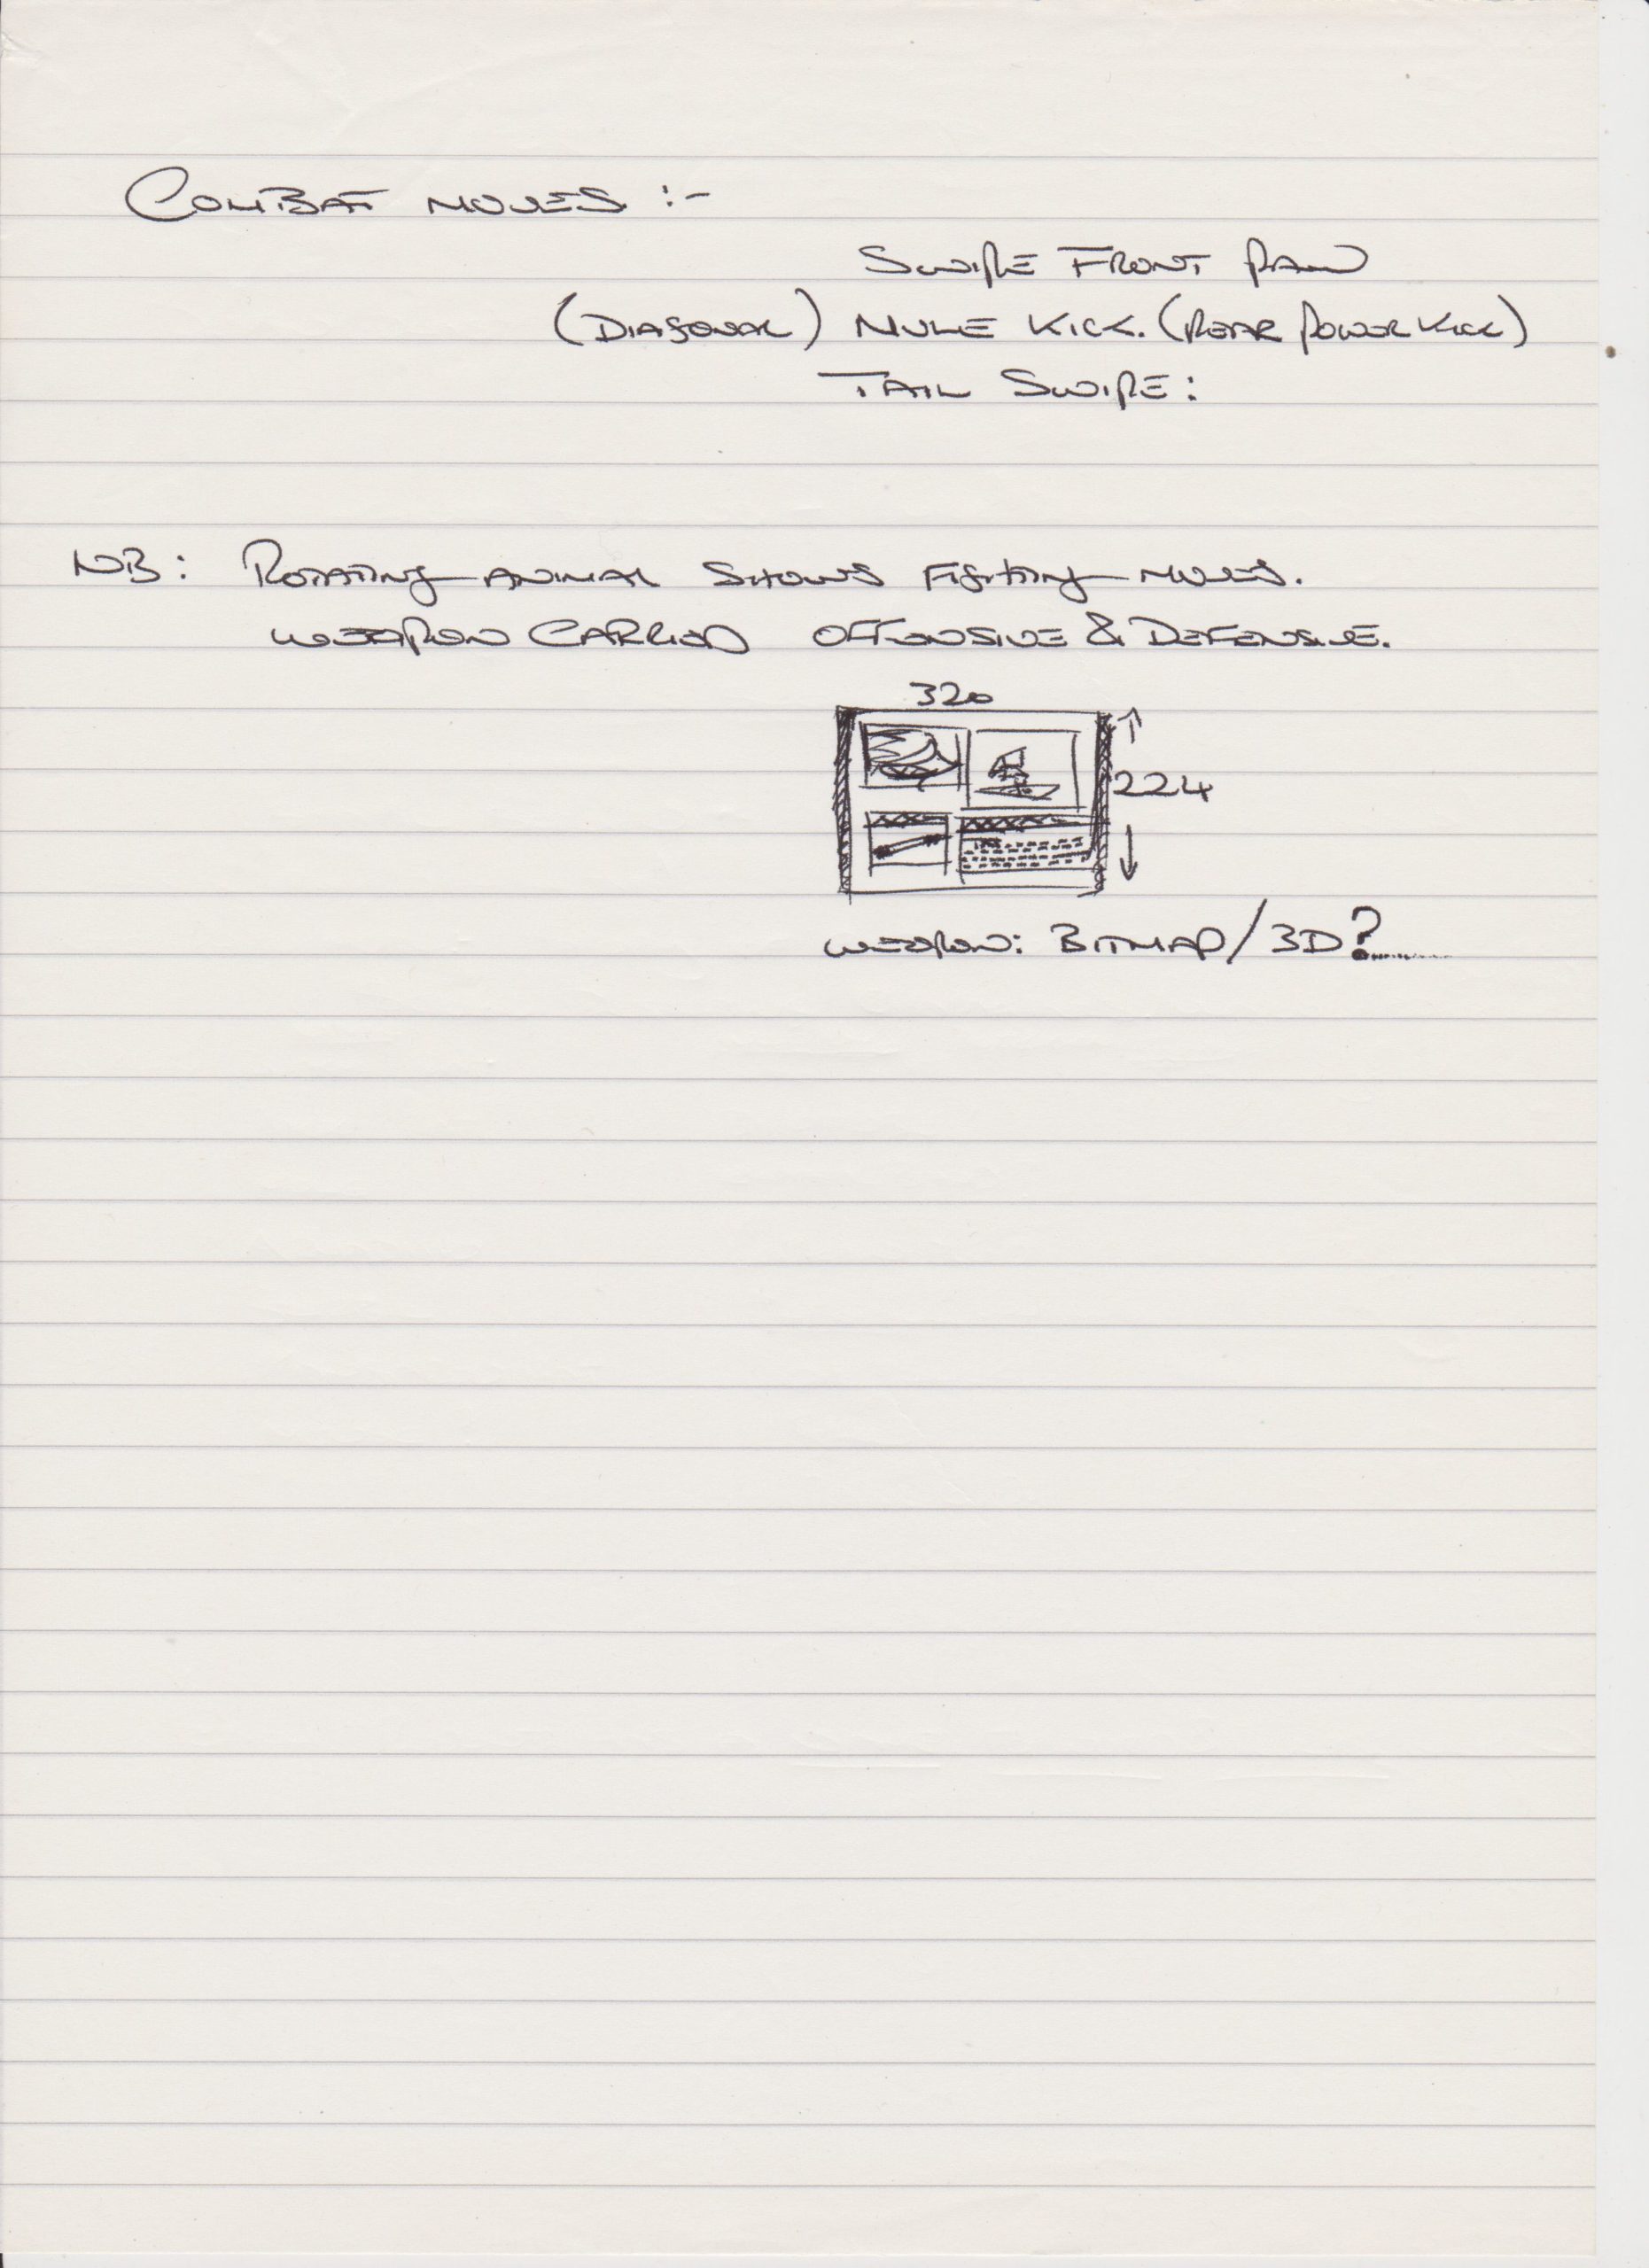 COMBAT MOVES :-
SWIPE FRONT PAW
(DIAGONAL) MULE KICK. (REAR POWER KICK)
TAIL SWIPE:
NB: ROTATING ANIMAL SHOWS FIGHTING MOVES.
WEAPON CARRIED OFFENSIVE & DEFENSIVE.
320
224
WEAPON: BITMAP/3D?